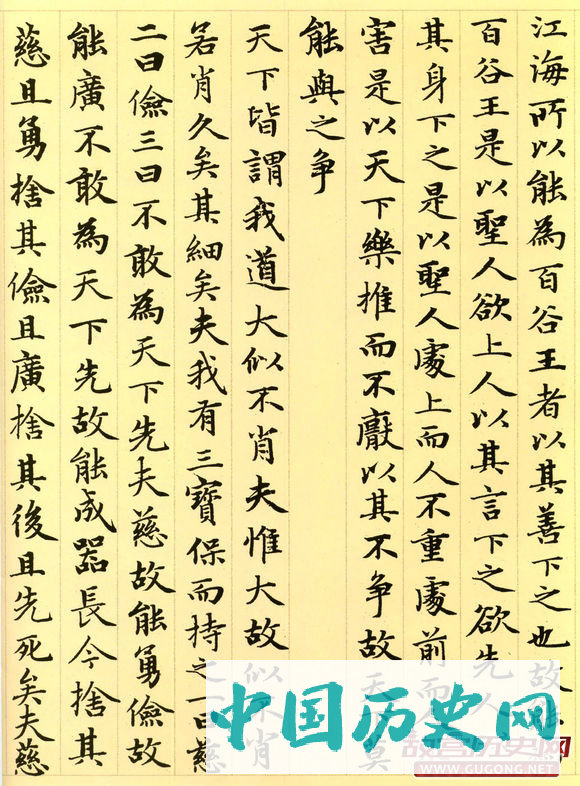 江海所以能為百谷王者以其善下之也故
百谷王是以聖人欲上人以其言下之欲先人
其身下之是以聖人處上而人不重處前而
害是以天下樂推而不厭以其不争故天下莫
能與之争
天下皆謂我道大似不肖夫惟大故似不肖
若肖久矣其細矣夫我有三寶保而持之一曰慈
二曰儉三曰不敢為天下先夫慈故能勇儉故
能廣不敢為天下先故能成器長今捨其
慈且勇捨其儉且廣捨其後且先死矣夫慈
中国历史网
故宫历史网
WWW.GUGONG.NET